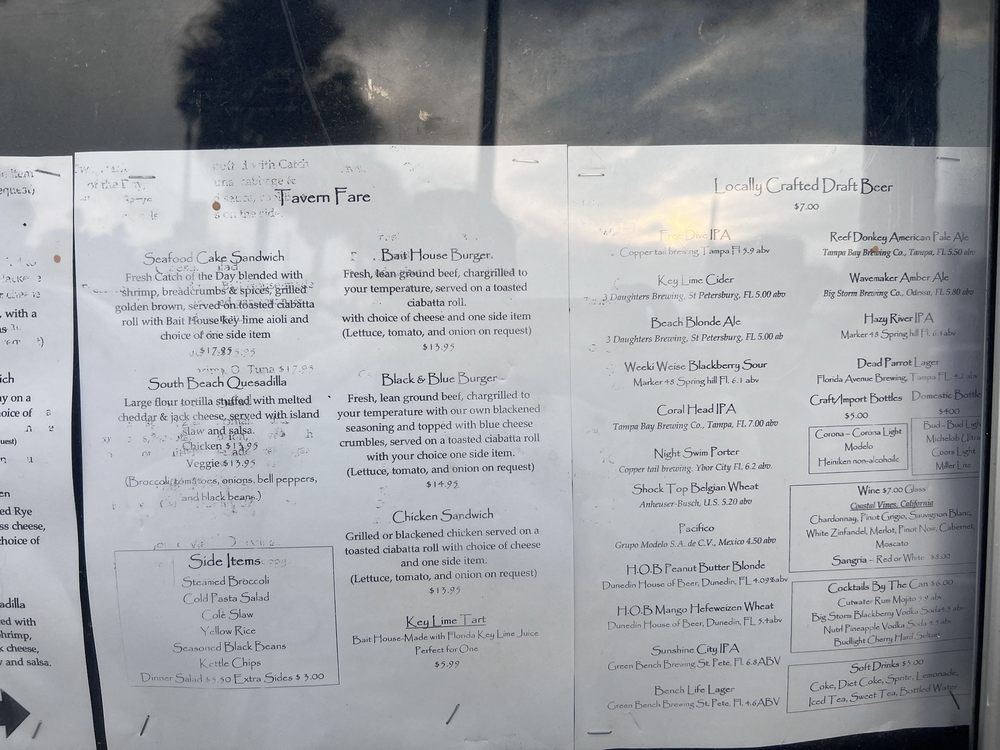 with a
oice of
ed Rye
ss cheese,
hoice of
adilla
ed with
k cheese,
and salsa.
Tavern Fare
Seafood Cake Sandwich
Fresh Catch of the Day blended with
shrimp, breadcrumbs & spices, grilled
golden brown, served on toasted ciabatta
roll with Bait House key lime aioli and
choice of one side item
South Beach Quesadilla
Large flour tortilla stuffed with melted
cheddar & jack cheese, served with island
slaw and salsa.
Chicken $13.95
Veggie $13.95
(Broccoli, tomatoes, onions, bell peppers,
and black beans.)
Side Items
Steamed Broccoli
Cold Pasta Salad
Cole Slaw
Yellow Rice
Seasoned Black Beans
Kettle Chips
Dinner Salad $5.50 Extra Sides $ 3.00
Bait House Burger
Fresh, lean ground beef, chargrilled to
your temperature, served on a toasted
ciabatta roll.
with choice of cheese and one side item
(Lettuce, tomato, and onion on request)
$13.95
Black & Blue Burger
Fresh, lean ground beef, chargrilled to
your temperature with our own blackened
seasoning and topped with blue cheese
crumbles, served on a toasted ciabatta roll
with your choice one side item.
(Lettuce, tomato, and onion on request)
$14.95
Chicken Sandwich
Grilled or blackened chicken served on a
toasted ciabatta roll with choice of cheese
and one side item.
(Lettuce, tomato, and onion on request)
$13.95
Key Lime Tart
Bait House-Made with Florida Key Lime Juice
Perfect for One
$5.99
Locally Crafted Draft Beer
$7.00
Free Dive IPA
Copper tail brewing, Tampa Fl 5.9 abv
Key Lime Cider
3 Daughters Brewing, St Petersburg, FL 5.00 abv
Beach Blonde Ale
3 Daughters Brewing, St Petersburg, FL 5.00 ab
Weeki Weise Blackberry Sour
Marker 48 Spring hill Fl. 6.1 abv
Coral Head IPA
Tampa Bay Brewing Co., Tampa, FL 7.00 abv
Night Swim Porter
Copper tail brewing, Ybor City FL 6.2 abv.
Shock Top Belgian Wheat
Anheuser-Busch, U.S. 5.20 abv
Pacifico
Grupo Modelo S.A. de C.V., Mexico 4.50 abv
H.O.B Peanut Butter Blonde
Dunedin House of Beer, Dunedin, FL 4.09%abv
H.O.B Mango Hefeweizen Wheat
Dunedin House of Beer, Dunedin, FL 5.4abv
Sunshine City IPA
Green Bench Brewing St. Pete, Fl. 6.8ABV
Bench Life Lager
Green Bench Brewing St. Pete, Fl. 4.6ABV
Reef Donkey American Pale Ale
Tampa Bay Brewing Co., Tampa, FL 5.50 abv
Wavemaker Amber Ale
Big Storm Brewing Co., Odessa, FL 5.80 abv
Hazy River IPA
Marker 48 Spring hill Fl. 6.1abv
Dead Parrot Lager
Florida Avenue Brewing, Tampa FL
Craft/Import Bottles
$5.00
Corona – Corona Light
Modelo
Heiniken non-alcoholic
Domestic Bottle
$4.00
Bud - Bud Ligh
Michelob Ultra
Coors Light
Miller Lite
Wine $7.00 Glass
Coastal Vines, California
Chardonnay, Pinot Grigio, Sauvignon Blanc,
White Zinfandel, Merlot, Pinot Noir, Cabernet,
Moscato
Sangria – Red or White $8.00
Cocktails By The Can $6.00
Cutwater Rum Mojito 5.9 abv
Big Storm Blackberry Vodka Soda
Nutrl Pineapple Vodka Soda
Budlight Cherry Hard Seltzer
Soft Drinks $3.00
Coke, Diet Coke, Sprite, Lemonade,
Iced Tea, Sweet Tea, Bottled Water